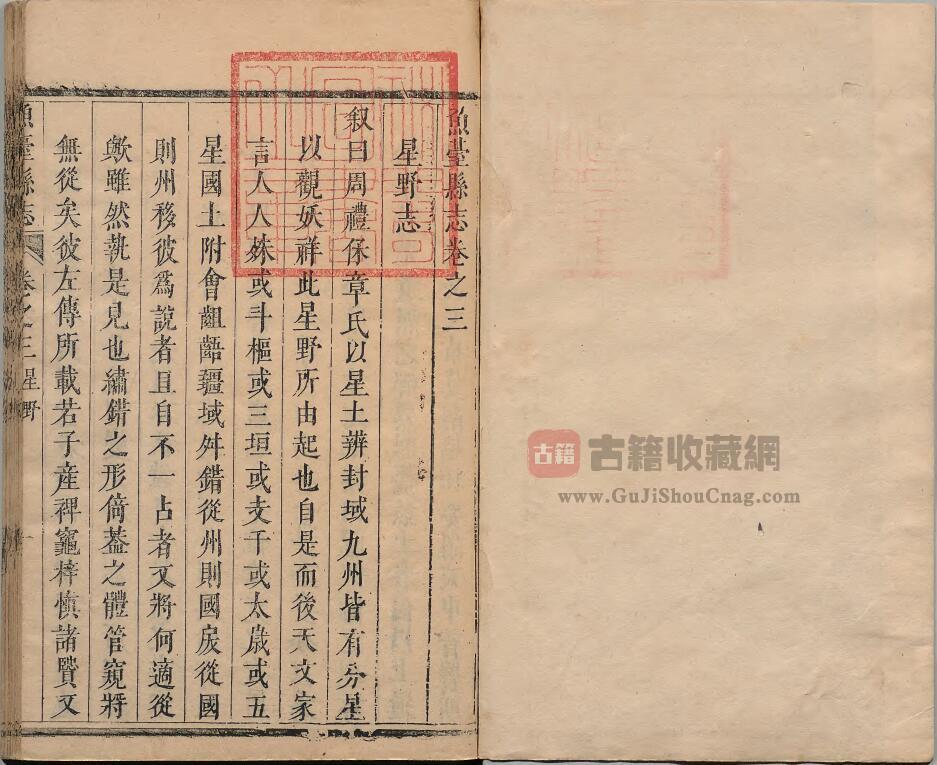 魚臺縣志卷之三
星野志
叙曰周禮保章氏以星土辨封域九州皆有分星
以觀妖祥此星野所由起也自是而後天文家
言人人殊或斗樞或三垣或支干或太歲或五
星國土附會齟齬疆域舛錯從州則國戾從國
則州移彼為說者且自不一占者又將何適從
歟雖然執是見也繡錯之形倚葢之體管窺將
無從矣彼左傳所載若子產裨竈梓慎諸賢又
魚臺縣志 卷之三 星野 一
古籍 古籍收藏網
www.GuJiShouCnag.com